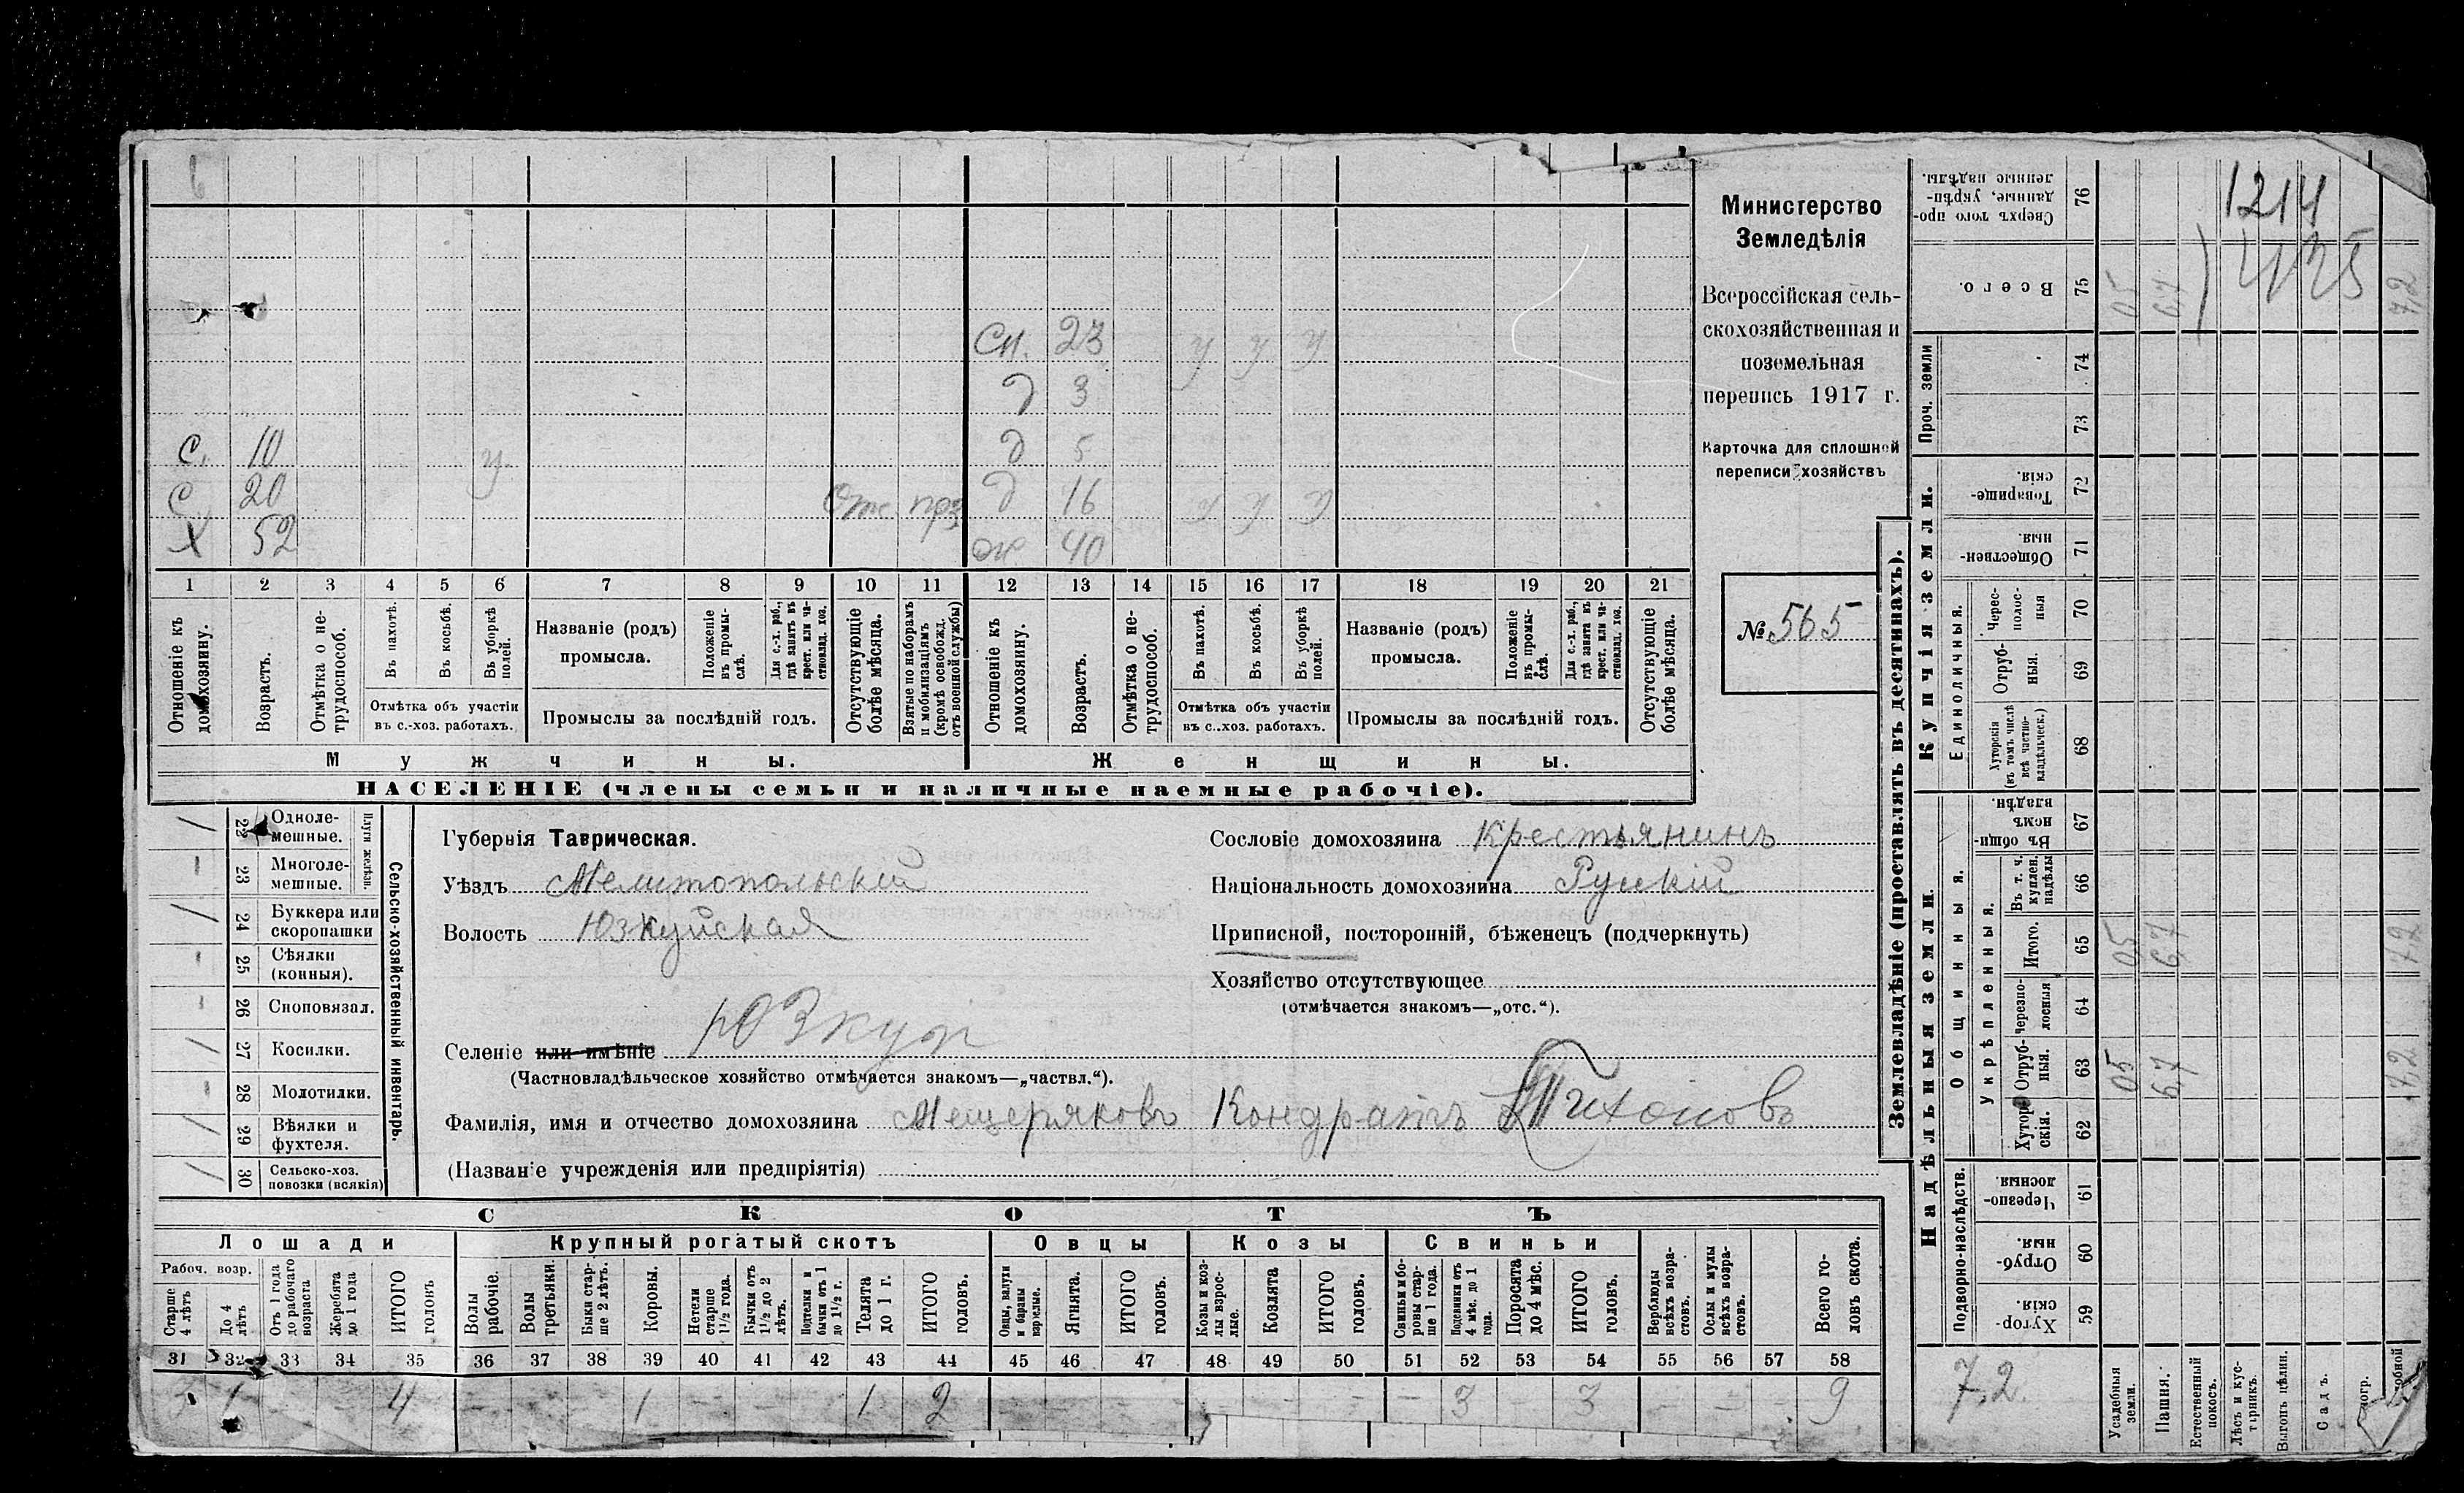 6
Сн. 23 у у у
д 3
С. 10 у д 5
С 20 Отс. прз. д 16 у у у
Х 52 ж 40
1 2 3 4 5 6 7 8 9 10 11 12 13 14 15 16 17 18 19 20 21
Отношеніе къ домохозяину.
Возрастъ.
Отмѣтка о нетрудоспособ.
Въ пахотѣ.
Въ косьбѣ.
Въ уборкѣ полей.
Отмѣтка объ участіи въ с.-хоз. работахъ.
Названіе (родъ) промысла.
Положеніе въ промыслѣ.
Для с.-х. раб., гдѣ занятъ въ крест. или частновлад. хоз.
Промыслы за послѣдній годъ.
Отсутствующіе болѣе мѣсяца.
Взятые по наборамъ и мобилизаціямъ (кромѣ освобожд. отъ военной службы)
Отношеніе къ домохозяину.
Возрастъ.
Отмѣтка о нетрудоспособ.
Въ пахотѣ.
Въ косьбѣ.
Въ уборкѣ полей.
Отмѣтка объ участіи въ с..хоз. работахъ.
Названіе (родъ) промысла.
Положеніе въ промыслѣ.
Для с.-х. раб., гдѣ занята въ крест. или частновлад. хоз.
Промыслы за послѣдній годъ.
Отсутствующіе болѣе мѣсяца.
Мужчины. Женщины.
НАСЕЛЕНІЕ (члены семьи и наличные наемные рабочіе).
Министерство
Земледѣлія
Всероссійская сель-
скохозяйственная и
поземельная
перепись 1917 г.
Карточка для сплошной
переписи хозяйствъ
№ 565
/ 22 Одноле-мешные.
- 23 Многоле-мешные.
Плуги желѣзн.
/ 24 Буккера или скоропашки
- 25 Сѣялки (конныя).
- 26 Сноповязал.
/ 27 Косилки.
- 28 Молотилки.
/ 29 Вѣялки и фухтеля.
/ 30 Сельско-хоз. повозки (всякія)
Сельско-хозяйственный инвентарь.
Губернія Таврическая.
Уѣздъ Мелитопольскій
Волость Юзкуйская
Селеніе или имѣніе Юзкуи
(Частновладѣльческое хозяйство отмѣчается знакомъ—„частвл.“).
Фамилія, имя и отчество домохозяина Мещеряковъ Кондратъ Тихоновъ
(Названіе учрежденія или предпріятія)
Сословіе домохозяина крестьянинъ
Національность домохозяина Русскій
Приписной, посторонній, бѣженецъ (подчеркнуть)
Хозяйство отсутствующее
(отмѣчается знакомъ—„отс.“).
СКОТЪ
Лошади Крупный рогатый скотъ Овцы Козы Свиньи
Рабоч. возр.
Старше 4 лѣтъ
До 4 лѣтъ
Отъ 1 года до рабочаго возраста
Жеребята до 1 года
ИТОГО головъ
Волы рабочіе.
Волы третьяки.
Быки старше 2 лѣтъ.
Коровы.
Нетели старше 1½ года.
Бычки отъ 1½ до 2 лѣтъ.
Подтелки и бычки отъ 1 до 1½ г.
Телята до 1 г.
ИТОГО головъ.
Овцы, валухи и бараны взрослые.
Ягнята.
ИТОГО головъ.
Козы и козлы взрослые.
Козлята
ИТОГО головъ.
Свиньи и боровы старше 1 года.
Подсвинки отъ 4 мѣс. до 1 года.
Поросята до 4 мѣс.
ИТОГО головъ.
Верблюды всѣхъ возрастовъ.
Ослы и мулы всѣхъ возрастовъ.
Всего головъ скота.
31 32 33 34 35 36 37 38 39 40 41 42 43 44 45 46 47 48 49 50 51 52 53 54 55 56 57 58
3 1 4 - - - 1 - - - 1 2 - - - - - - - 3 3 - - 9
Землевладѣніе (проставлять въ десятинахъ).
Сверхъ того проданные, укрѣпленные надѣлы. 76
1214
Всего. 75 05 6,7 7,2
Купчія земли.
Проч. земли 74
73
Товарищескія 72
Общественныя 71
Единоличныя.
Чересполосныя 70
Отрубныя. 69
Хуторскія (въ томъ числѣ всѣ частновладѣльческ.) 68
Надѣльныя земли.
Общинныя.
Въ общинномъ владѣн. 67
Укрѣпленныя.
Въ т. ч. куплен. надѣлы 66
Итого. 65 05 6,7 7,2
Черезполосныя 64
Отрубныя. 63 05 6,7 7,2
Хуторскія. 62
Подворно-наслѣдств.
Черезполосныя. 61
Отрубныя. 60
Хуторскія. 59
7,2
Усадебныя земли.
Пашня.
Естественный покосъ.
Лѣсъ и кустарникъ.
Выгонъ цѣлин.
Садъ.